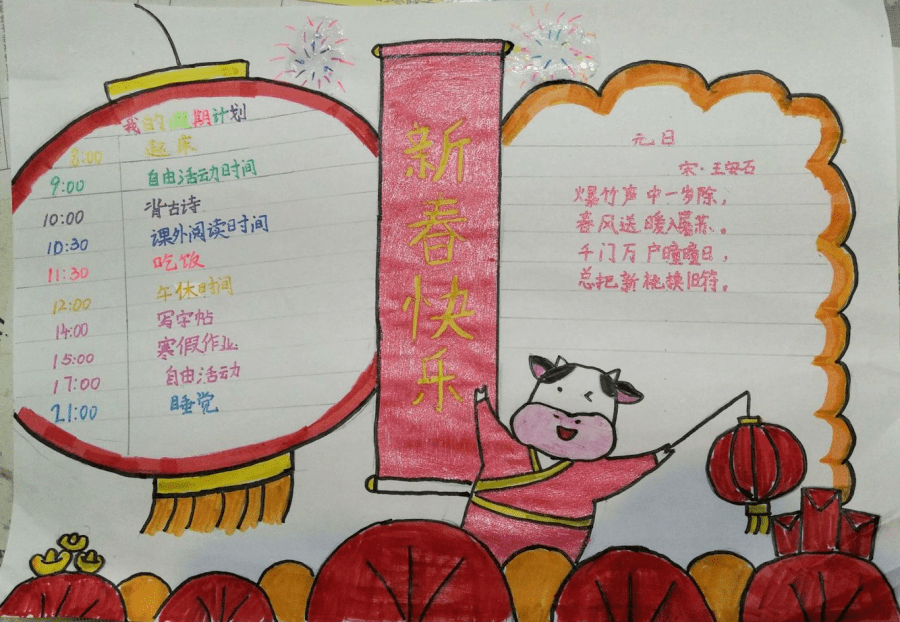 我的假期计划
8:00 起床
9:00 自由活动时间
10:00 背古诗
10:30 课外阅读日时间
11:30 吃饭
12:00 午休时间
14:00 写字帖
15:00 寒假作业
17:00 自由活动
21:00 睡觉
新春快乐
元日
宋·王安石
爆竹声中一岁除,
春风送暖入屠苏。
千门万户曈曈日,
总把新桃换旧符。